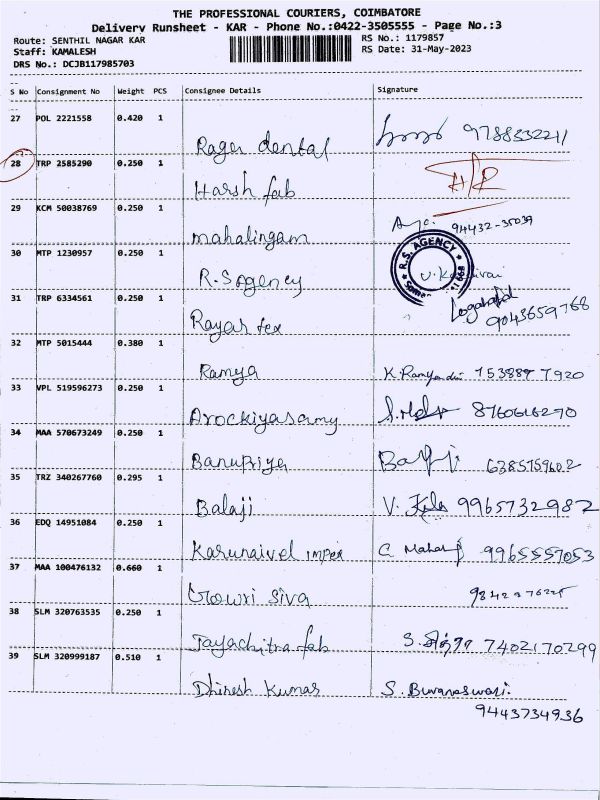 THE PROFESSIONAL COURIERS, COIMBATORE
Delivery Runsheet - KAR - Phone No.:0422-3505555 - Page No.:3
Route: SENTHIL NAGAR KAR RS No.: 1179857
Staff: KAMALESH RS Date: 31-May-2023
DRS No.: DCJB117985703
S No Consignment No Weight PCS Consignee Details Signature
27 POL 2221558 0.420 1
Rager dental 9788332211
28 TRP 2585290 0.250 1
Harsh fab
29 KCM 50038769 0.250 1
mahalingam 94432-35037
30 MTP 1230957 0.250 1
R.S.agency R.S. AGENCY
31 TRP 6334561 0.250 1
Rayar tex 9043659768
32 MTP 5015444 0.380 1
Ramya
33 VPL 519596273 0.250 1
Arockiyasamy 8760616270
34 MAA 570673249 0.250 1
Banupriya
35 TRZ 340267760 0.295 1
Balaji V. 9965732982
36 EDQ 14951084 0.250 1
Karunaivel impex 9965557053
37 MAA 100476132 0.660 1
Gowri Siva
38 SLM 320763535 0.250 1
Jayachitra fab 7402170299
39 SLM 320999187 0.510 1
Dhinesh Kumar S. Buvaneswari.
9443734936